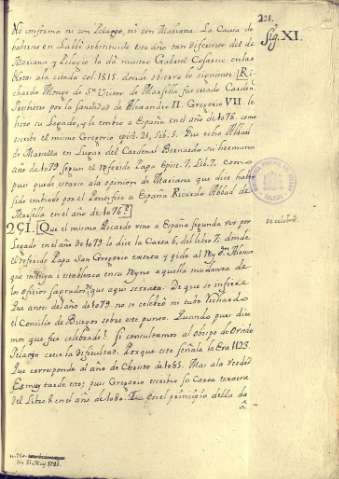 221.
Sig. XI.
No conforma ni con Pelagio, ni con Mariana. La Causa de
haberse en Salbi substituido este año tan diferente del de
Mariana y Pelagio la da nuestro Gabriel Cosarcio en las
Notas a la citada col. 1515. donde observa lo siguiente. [Ri-
chardo Monge de Sn Victor de Marsella fue criado Carden.
Presbitero por la Santidad de Alexandro II. Gregorio VII. le
hizo su Legado, y le embio a España en el año de 1076. como
escribe el mismo Gregorio epist. 21, Lib. 5. Fue echo Abbad
de Marsella en Lugar del Cardenal Bernardo su hermano
año de 1079 segun el referido Papa Epist. 7, Lib. 7. Como
pues puede estarse a la opinion de Mariana que dice haber
sido embiado por el Pontifice a España Ricardo Abbad de
Marsella en el año de 1076?]
251. Que el mismo Ricardo vino a España segunda vez por
Legado en el año de 1079 lo dice la Carta 6, del libro 7: donde
el referido Papa San Gregorio exorta y pide al Rey Dn. Alonso
que instituya y establezca en su Reyno aquella mudanza de
los oficios sagrados, que aqui se trata. De que se infiere
Que antes del año de 1079. no se celebró ni tubo Richardo
el Concilio de Burgos sobre este punto. Quando pues dire-
mos que fue celebrado? Si consultamos al obispo de Oviedo
Pelagio crece la dificultad. Porque este señala la Era 1123
Que corresponde al año de Christo de 1085. Mas a la verdad
Es muy tarde esto; pues Gregorio escribio su Carta tercera
del Libro 8 en el año de 1080. En el principio della da